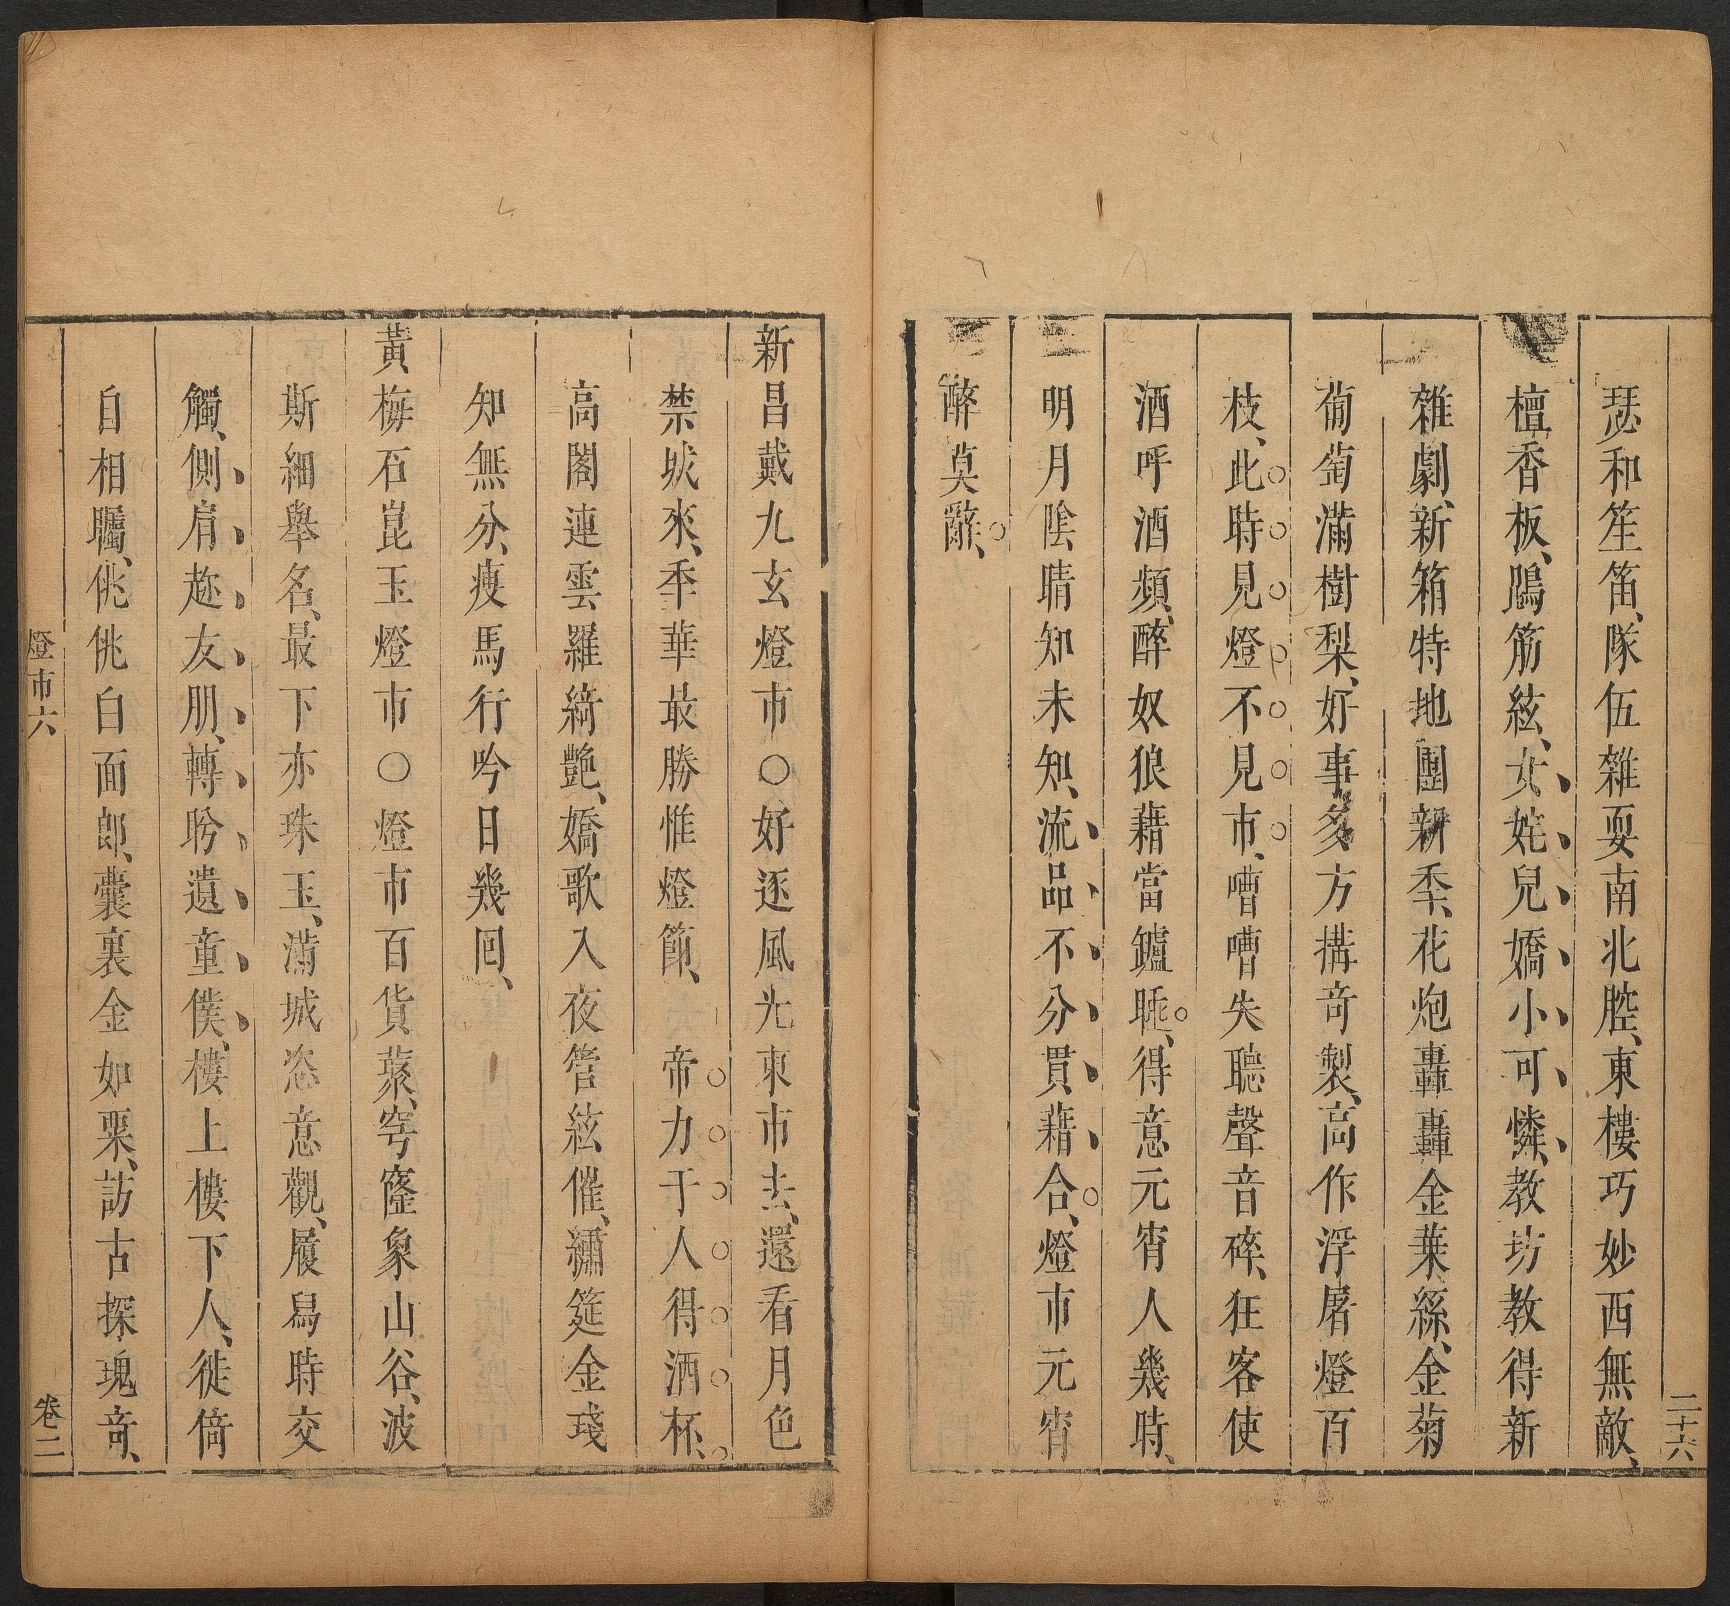 二十六
瑟和笙笛、隊伍雜耍南北腔、東樓巧妙西無敵、
檀香板、鵾筋絃、女姹兒嬌小可憐、教坊教得新
雜劇、新箱特地團新秊、花炮轟轟金葉絲、金菊
葡萄滿樹梨、好事多方搆奇製、高作浮屠燈百
枝、此時見燈不見市、嘈嘈失聽聲音碎、狂客使
酒呼酒頻、醉奴狼藉當鑪睡、得意元宵人幾時、
明月陰晴知未知、流品不分貫藉合、燈市元宵
醉莫辭、
新昌戴九玄燈市○好逐風光東市去、還看月色
禁城來、秊華最勝惟燈節、帝力于人得酒杯、
高閣連雲羅綺艷、嬌歌入夜管絃催、繡筵金琖
知無分、瘦馬行吟日幾囘、
黃梅石崑玉燈市○燈市百貨蒸、窵窿象山谷、波
斯細舉名、最下亦珠玉、滿城恣意觀、履舄時交
觸、側肩趂友朋、轉盻遺童僕、樓上樓下人、徙倚
自相矚、佻佻白面郎、囊裏金如粟、訪古探瑰奇、
燈市六
卷二